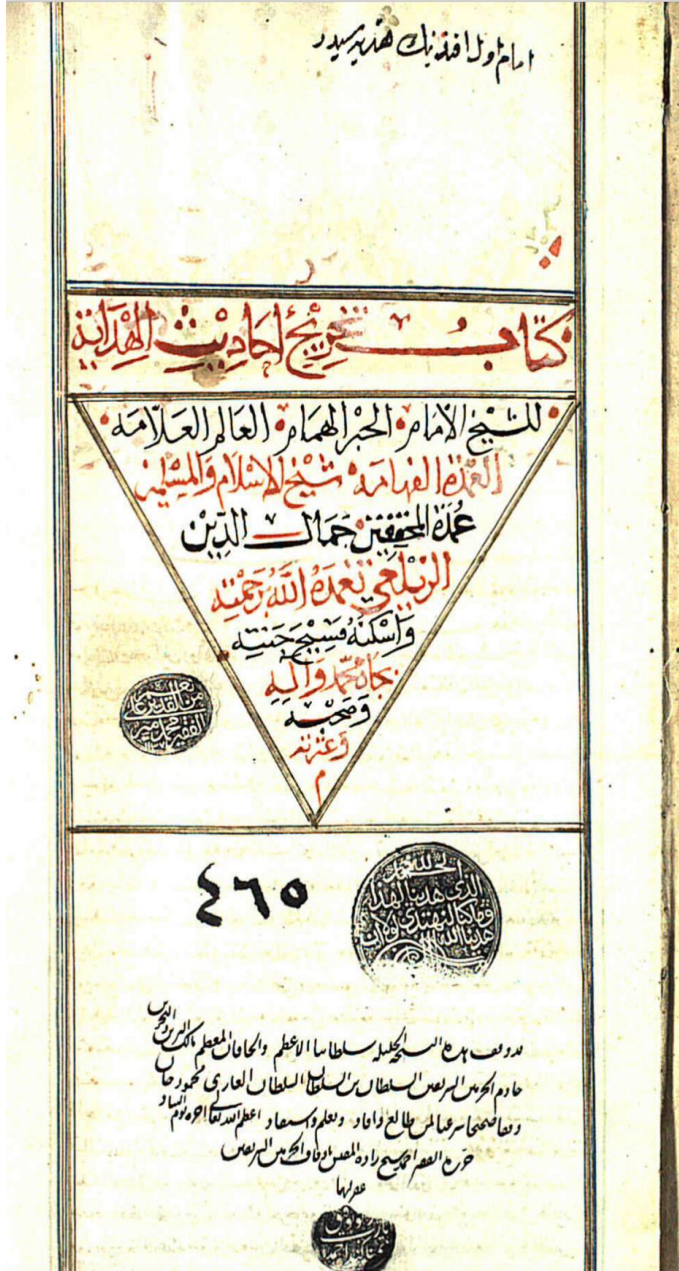 امام اول افندينك هديه سيدر
كتاب تخريج أحاديث الهداية
للشيخ الامام الحبر الهمام العالم العلامه
العمدة الفهامة شيخ الاسلام والمسلمين
عمدة المحققين جمال الدين
الزيلعي تغمده الله برحمته
واسكنه فسيح جنته
بجاه محمد وآله
وصحبه
وعترته
م
٤٦٥
الحمد لله
الذي هدينا لهذا
وما كنا لنهتدي لولا ان
هدينا الله
قد وقف هذه النسخة الجليلة سلطاننا الاعظم والخاقان المعظم مالك البرين والبحرين
خادم الحرمين الشريفين السلطان بن السلطان السلطان الغازي محمود خان
وقفا صحيحا شرعيا لمن طالع وافاد وتعلم واستفاد اعظم الله تعالى اجره يوم التناد
حرره الفقير احمد شيخ زاده المفتش باوقاف الحرمين الشريفين
غفر لهما